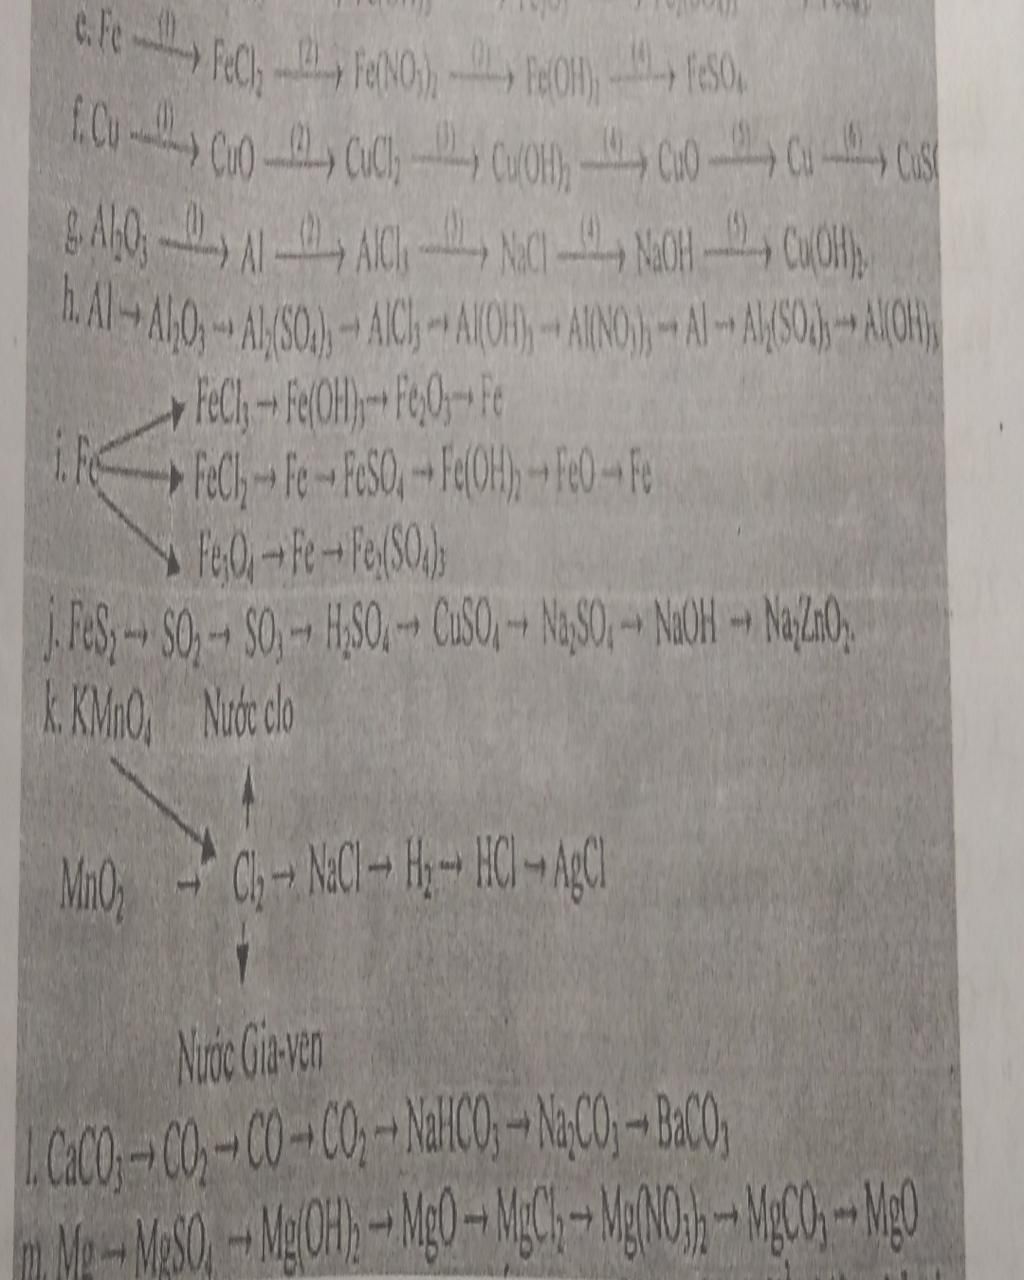 e. Fe (1)→ FeCl₂ (2)→ Fe(NO₃)₂ (3)→ Fe(OH)₂ (4)→ FeSO₄.
f. Cu (1)→ CuO (2)→ CuCl₂ (3)→ Cu(OH)₂ (4)→ CuO (5)→ Cu (6)→ CuS
g. Al₂O₃ (1)→ Al (2)→ AlCl₃ (3)→ NaCl (4)→ NaOH (5)→ Cu(OH)₂.
h. Al → Al₂O₃ → Al₂(SO₄)₃ → AlCl₃ → Al(OH)₃ → Al(NO₃)₃ → Al → Al₂(SO₄)₃ → Al(OH)₃
FeCl₃ → Fe(OH)₃ → Fe₂O₃ → Fe
i. Fe FeCl₂ → Fe → FeSO₄ → Fe(OH)₂ → FeO → Fe
Fe₃O₄ → Fe → Fe₂(SO₄)₃
j. FeS₂ → SO₂ → SO₃ → H₂SO₄ → CuSO₄ → Na₂SO₄ → NaOH → Na₂ZnO₂.
k. KMnO₄ Nước clo
MnO₂ → Cl₂ → NaCl → H₂ → HCl → AgCl
Nước Gia-ven
l. CaCO₃ → CO₂ → CO → CO₂ → NaHCO₃ → Na₂CO₃ → BaCO₃
m. Mg → MgSO₄ → Mg(OH)₂ → MgO → MgCl₂ → Mg(NO₃)₂ → MgCO₃ → MgO